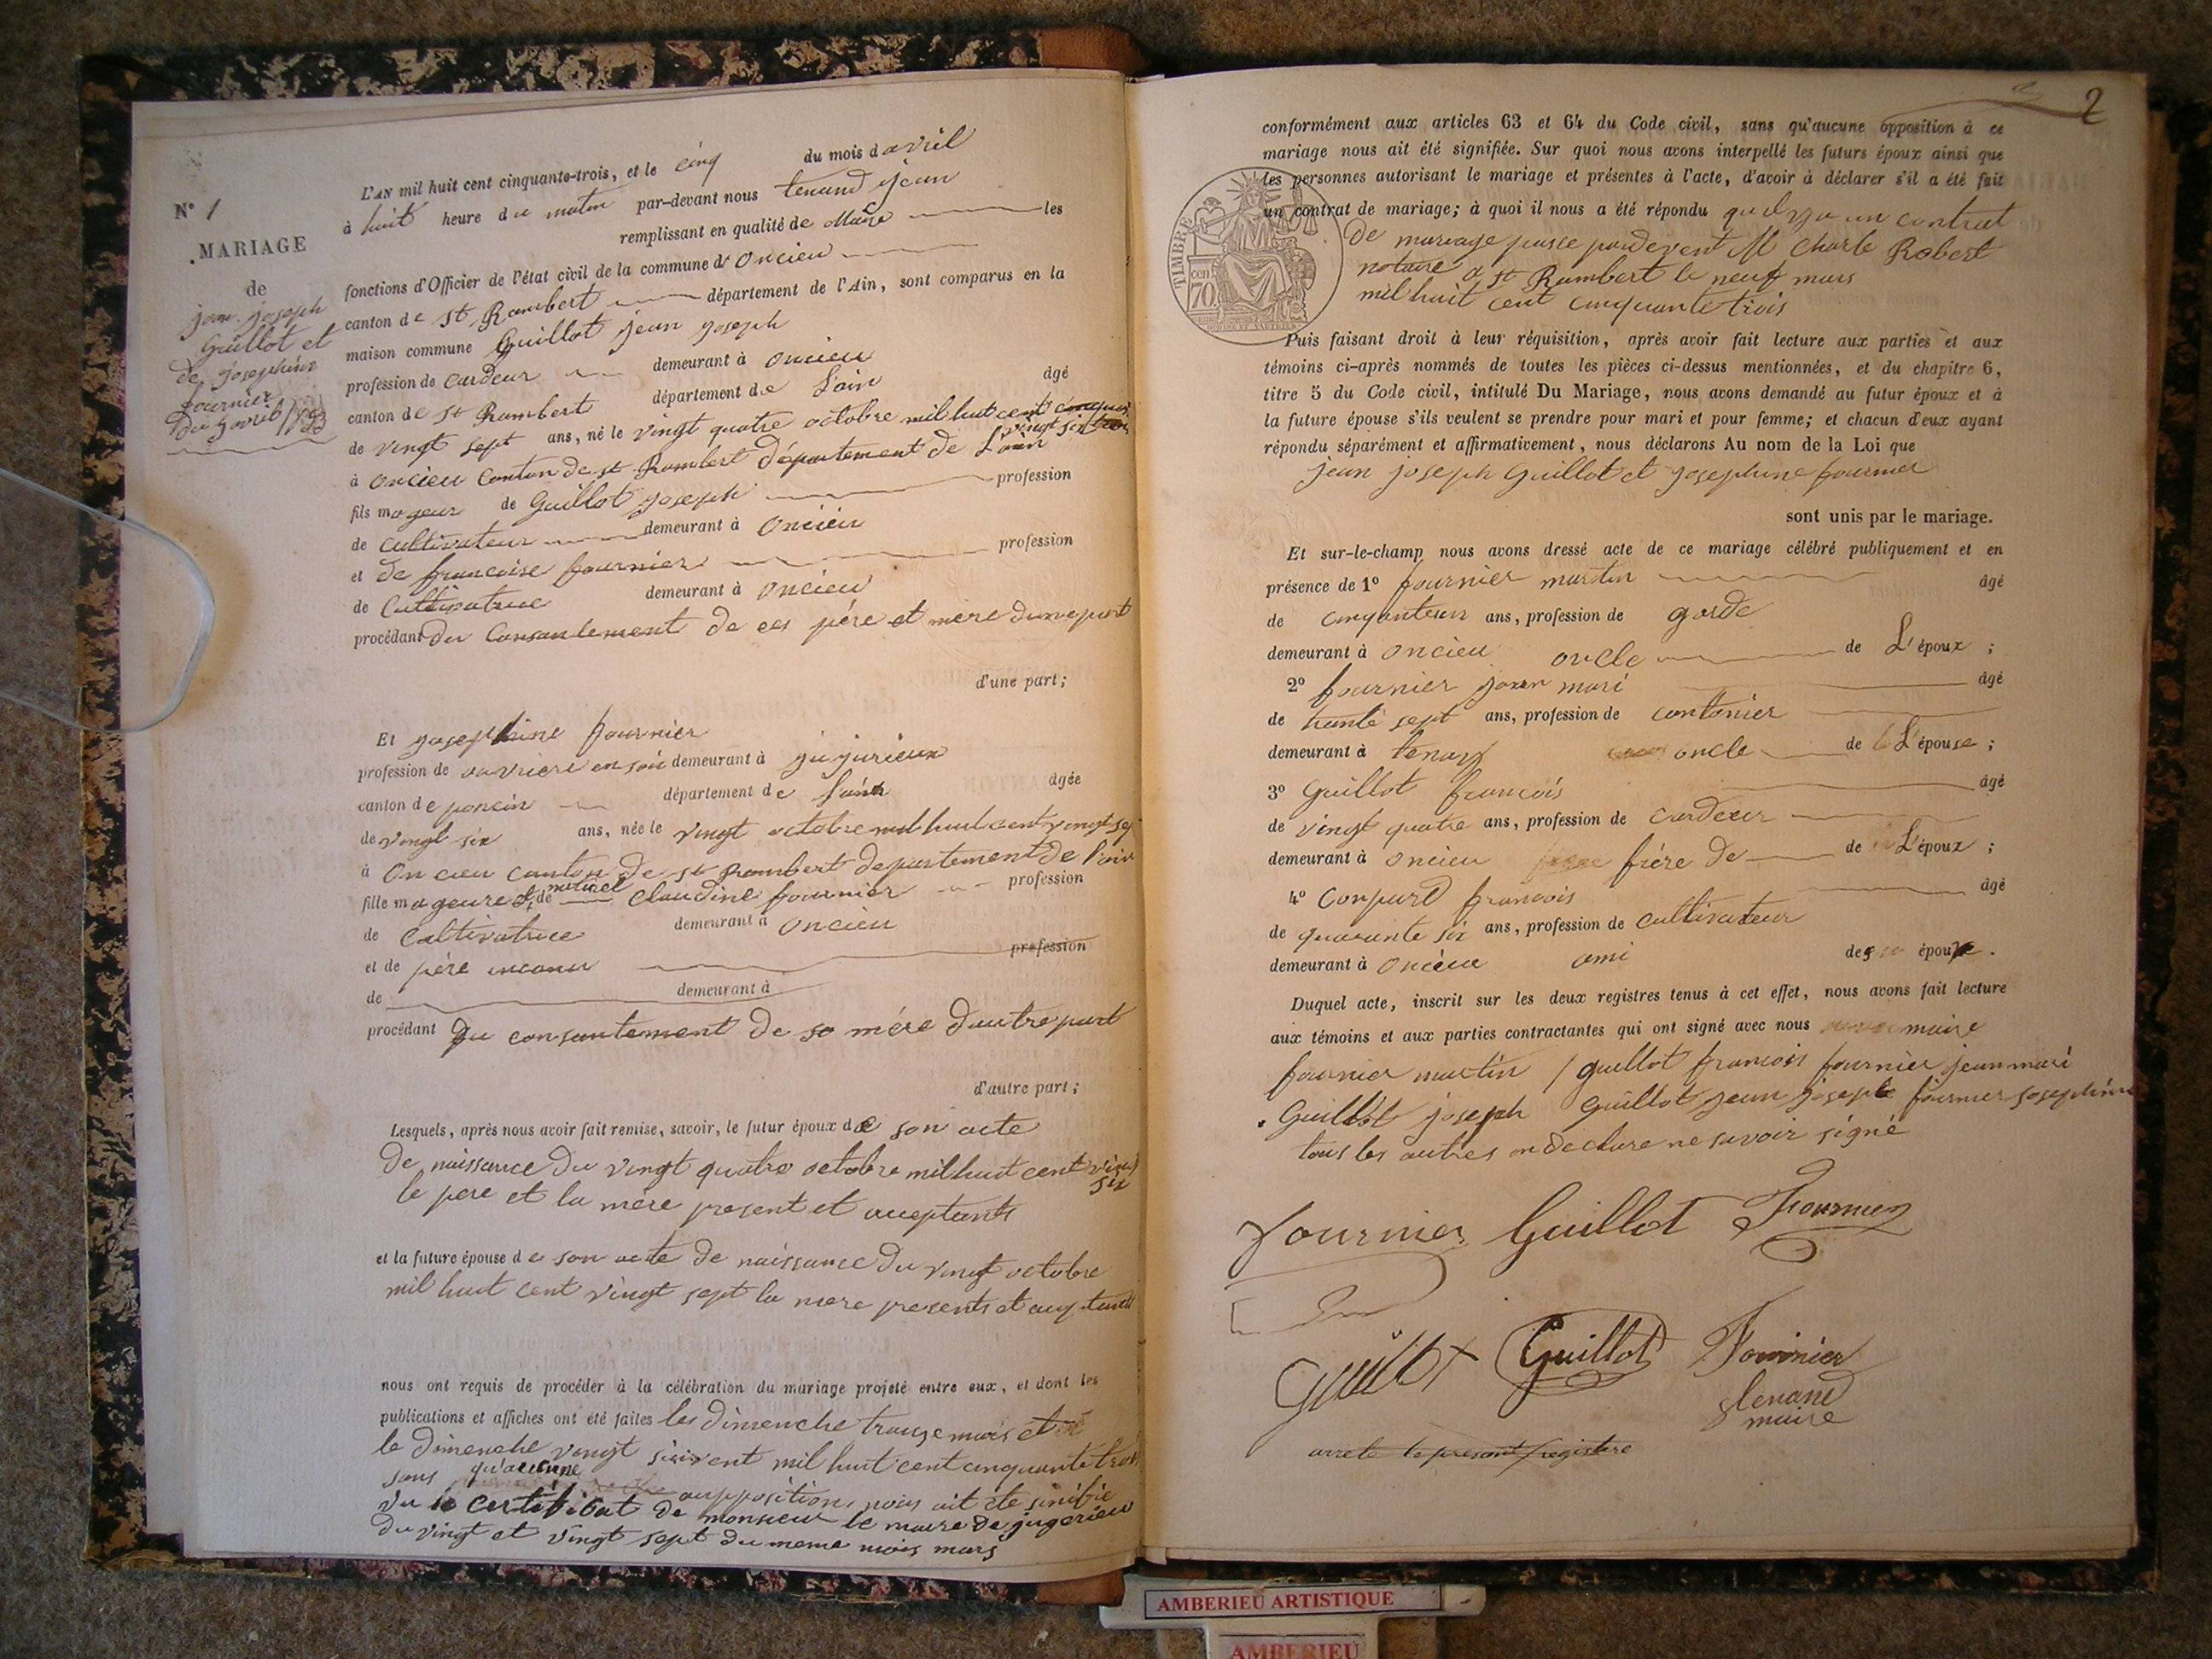 N° 1
MARIAGE
de
jean joseph
Guillot et
de josephine
fournier
du 5 avril 1853
L'AN mil huit cent cinquante-trois, et le cinq du mois d avril
à huit heure du matin par-devant nous tenand jean
remplissant en qualité de Maire les
fonctions d'Officier de l'état civil de la commune d' oncieu
canton de St Rambert département de l'Ain, sont comparus en la
maison commune Guillot jean joseph
profession de cardeur demeurant à oncieu
canton de St Rambert département de L'ain âgé
de vingt sept ans, né le vingt quatre octobre mil huit cent
vingt six
à oncieu Canton de st Rambert département de L'ain
fils mageur de Guillot joseph profession
de cultivateur demeurant à oncieu
et de francoise fournier profession
de Cultivatrice demeurant à oncieu
procédant du Consantement de ces père et mere dune part
d'une part;
Et josephine fournier
profession de ouvriere en soi demeurant à jujurieux
canton de poncin département de L'ain âgée
de vingt six ans, née le vingt octobre mil huit cent vingt sep
à On cieu canton de st Rambert departement de l'ain
fille mageure et de naturel Claudine fournier profession
de Cultivatrice demeurant à oncieu
et de père inconu profession
de demeurant à
procédant du consantement de sa mére dautre part
d'autre part;
Lesquels, après nous avoir fait remise, savoir, le futur époux de son acte
de naissance du vingt quatre octobre mil huit cent vingt
six
le pere et la mère present et acceptants
et la future épouse de son acte de naissance du vingt octobre
mil huit cent vingt sept la mere presents et
nous ont requis de procéder à la célébration du mariage projeté entre eux, et dont les
publications et affiches ont été faites les dimenche trauze mars et
le dimenche vingt suivent mil huit cent cinquante trois
sans qu'aucune oupposition nous ait ete sinifie
vu le certificat de monsieur le maire de jugerieu
du vingt et vingt sept du meme mois mars
2
conformément aux articles 63 et 64 du Code civil, sans qu'aucune opposition à ce
mariage nous ait été signifiée. Sur quoi nous avons interpellé les futurs époux ainsi que
les personnes autorisant le mariage et présentes à l'acte, d'avoir à déclarer s'il a été fait
un contrat de mariage; à quoi il nous a été répondu quil y a un contrat
de mariage passe pardevent M Charle Robert
notaire a st Rambert le neuf mars
mil huit cent cinquante trois
TIMBRE
cen
70
Puis faisant droit à leur réquisition, après avoir fait lecture aux parties et aux
témoins ci-après nommés de toutes les pièces ci-dessus mentionnées, et du chapitre 6,
titre 5 du Code civil, intitulé Du Mariage, nous avons demandé au futur époux et à
la future épouse s'ils veulent se prendre pour mari et pour femme; et chacun d'eux ayant
répondu séparément et affirmativement, nous déclarons Au nom de la Loi que
jean joseph Guillot et josephine fournier
sont unis par le mariage.
Et sur-le-champ nous avons dressé acte de ce mariage célébré publiquement et en
présence de 1° fournier martin âgé
de ans, profession de garde
demeurant à oncieu oncle de L'époux ;
2° fournier jean mari âgé
de trente sept ans, profession de cantonier
demeurant à tenay oncle de L'épouse ;
3° Guillot francois âgé
de vingt quatre ans, profession de cardeur
demeurant à oncieu frére de de L'époux ;
4° Conpard francois âgé
de quarante six ans, profession de cultivateur
demeurant à oncieu ami des époux.
Duquel acte, inscrit sur les deux registres tenus à cet effet, nous avons fait lecture
aux témoins et aux parties contractantes qui ont signé avec nous maire
fournier martin / guillot francois fournier jean mari
Guillot joseph Guillot jean joseph fournier josephine
tous les autres on declare ne savoir signé
fournier Guillot Fournier
Guillot Guillot Fournier
tenand
maire
arrete le present registere
AMBERIEU ARTISTIQUE
AMBERIEU